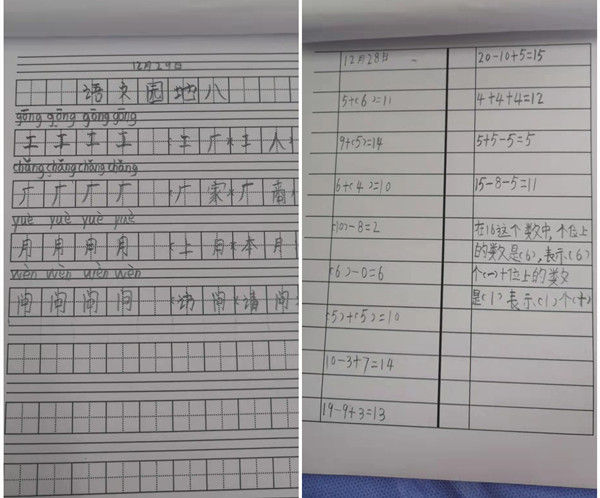 12月29日
语文园地八
gōng gōng gōng gōng
工工工工(工厂)(工人
chǎng chǎng chǎng chǎng
厂厂厂厂(厂家)(厂商
yuè yuè yuè yuè
月月月月(上月)(本月
wèn wèn wèn wèn
问问问问(访问)(请问
12月28日
5+(6)=11
9+(5)=14
6+(4)=10
(10)-8=2
(6)-0=6
(5)+(5)=10
10-3+7=14
19-9+3=13
20-10+5=15
4+4+4=12
5+5-5=5
15-8-5=11
在16这个数中,个位上
的数是(6),表示(6)
个(一)十位上的数
是(1)表示(1)个(十)